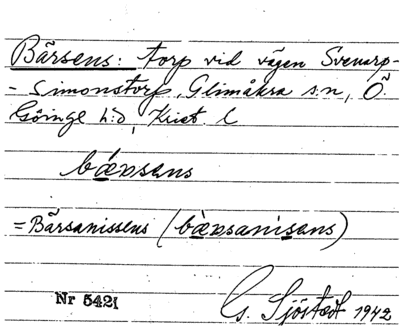 Bärsens: torp vid vägen Svenarp-
- Simonstorp, Glimåkra sn, Ö
Göinge h:d, Krist. l
bǽrsens
= Bärsanissens (bǽrsanisens)
Nr 5421
G. Sjöstedt 1942